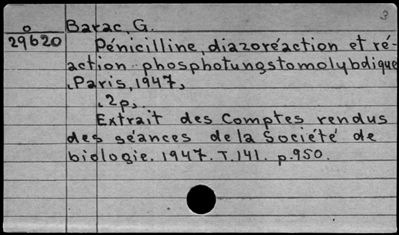 3
o
29620
Barac G.
Pénicilline, diazoréaction et ré-
action phosphotungstomolybdique
Paris, 1947,
2p,
Extrait des Comptes rendus
des séances de la Société de
biologie. 1947. T. 141. p. 950.